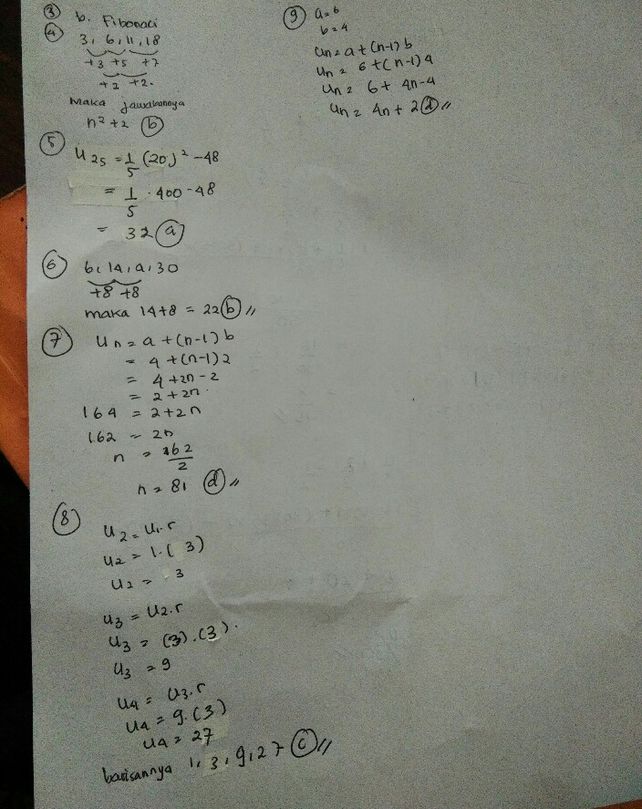 ③ b. Fibonaci
④ 3, 6, 11, 18
+3 +5 +7
+2 +2.
Maka jawabannya
n² + 2 ⓑ
⑤ U25 = 1/5 (20)² - 48
= 1/5 · 400 - 48
= 32 ⓐ
⑥ 6, 14, a, 30
+8 +8
maka 14+8 = 22 ⓑ //
⑦ Un = a + (n-1) b
= 4 + (n-1) 2
= 4 + 2n - 2
= 2 + 2n
164 = 2 + 2n
162 = 2n
n = 162/2
n = 81 ⓓ //
⑧
U2 = U1.r
U2 = 1.( 3)
U2 = 3
U3 = U2.r
U3 = (3).(3).
U3 = 9
U4 = U3.r
U4 = 9.(3)
U4 = 27
barisannya 1, 3, 9, 27 ⓒ //
⑨ a = 6
b = 4
Un = a + (n-1) b
Un = 6 + (n-1) 4
Un = 6 + 4n - 4
Un = 4n + 2 ⓓ //